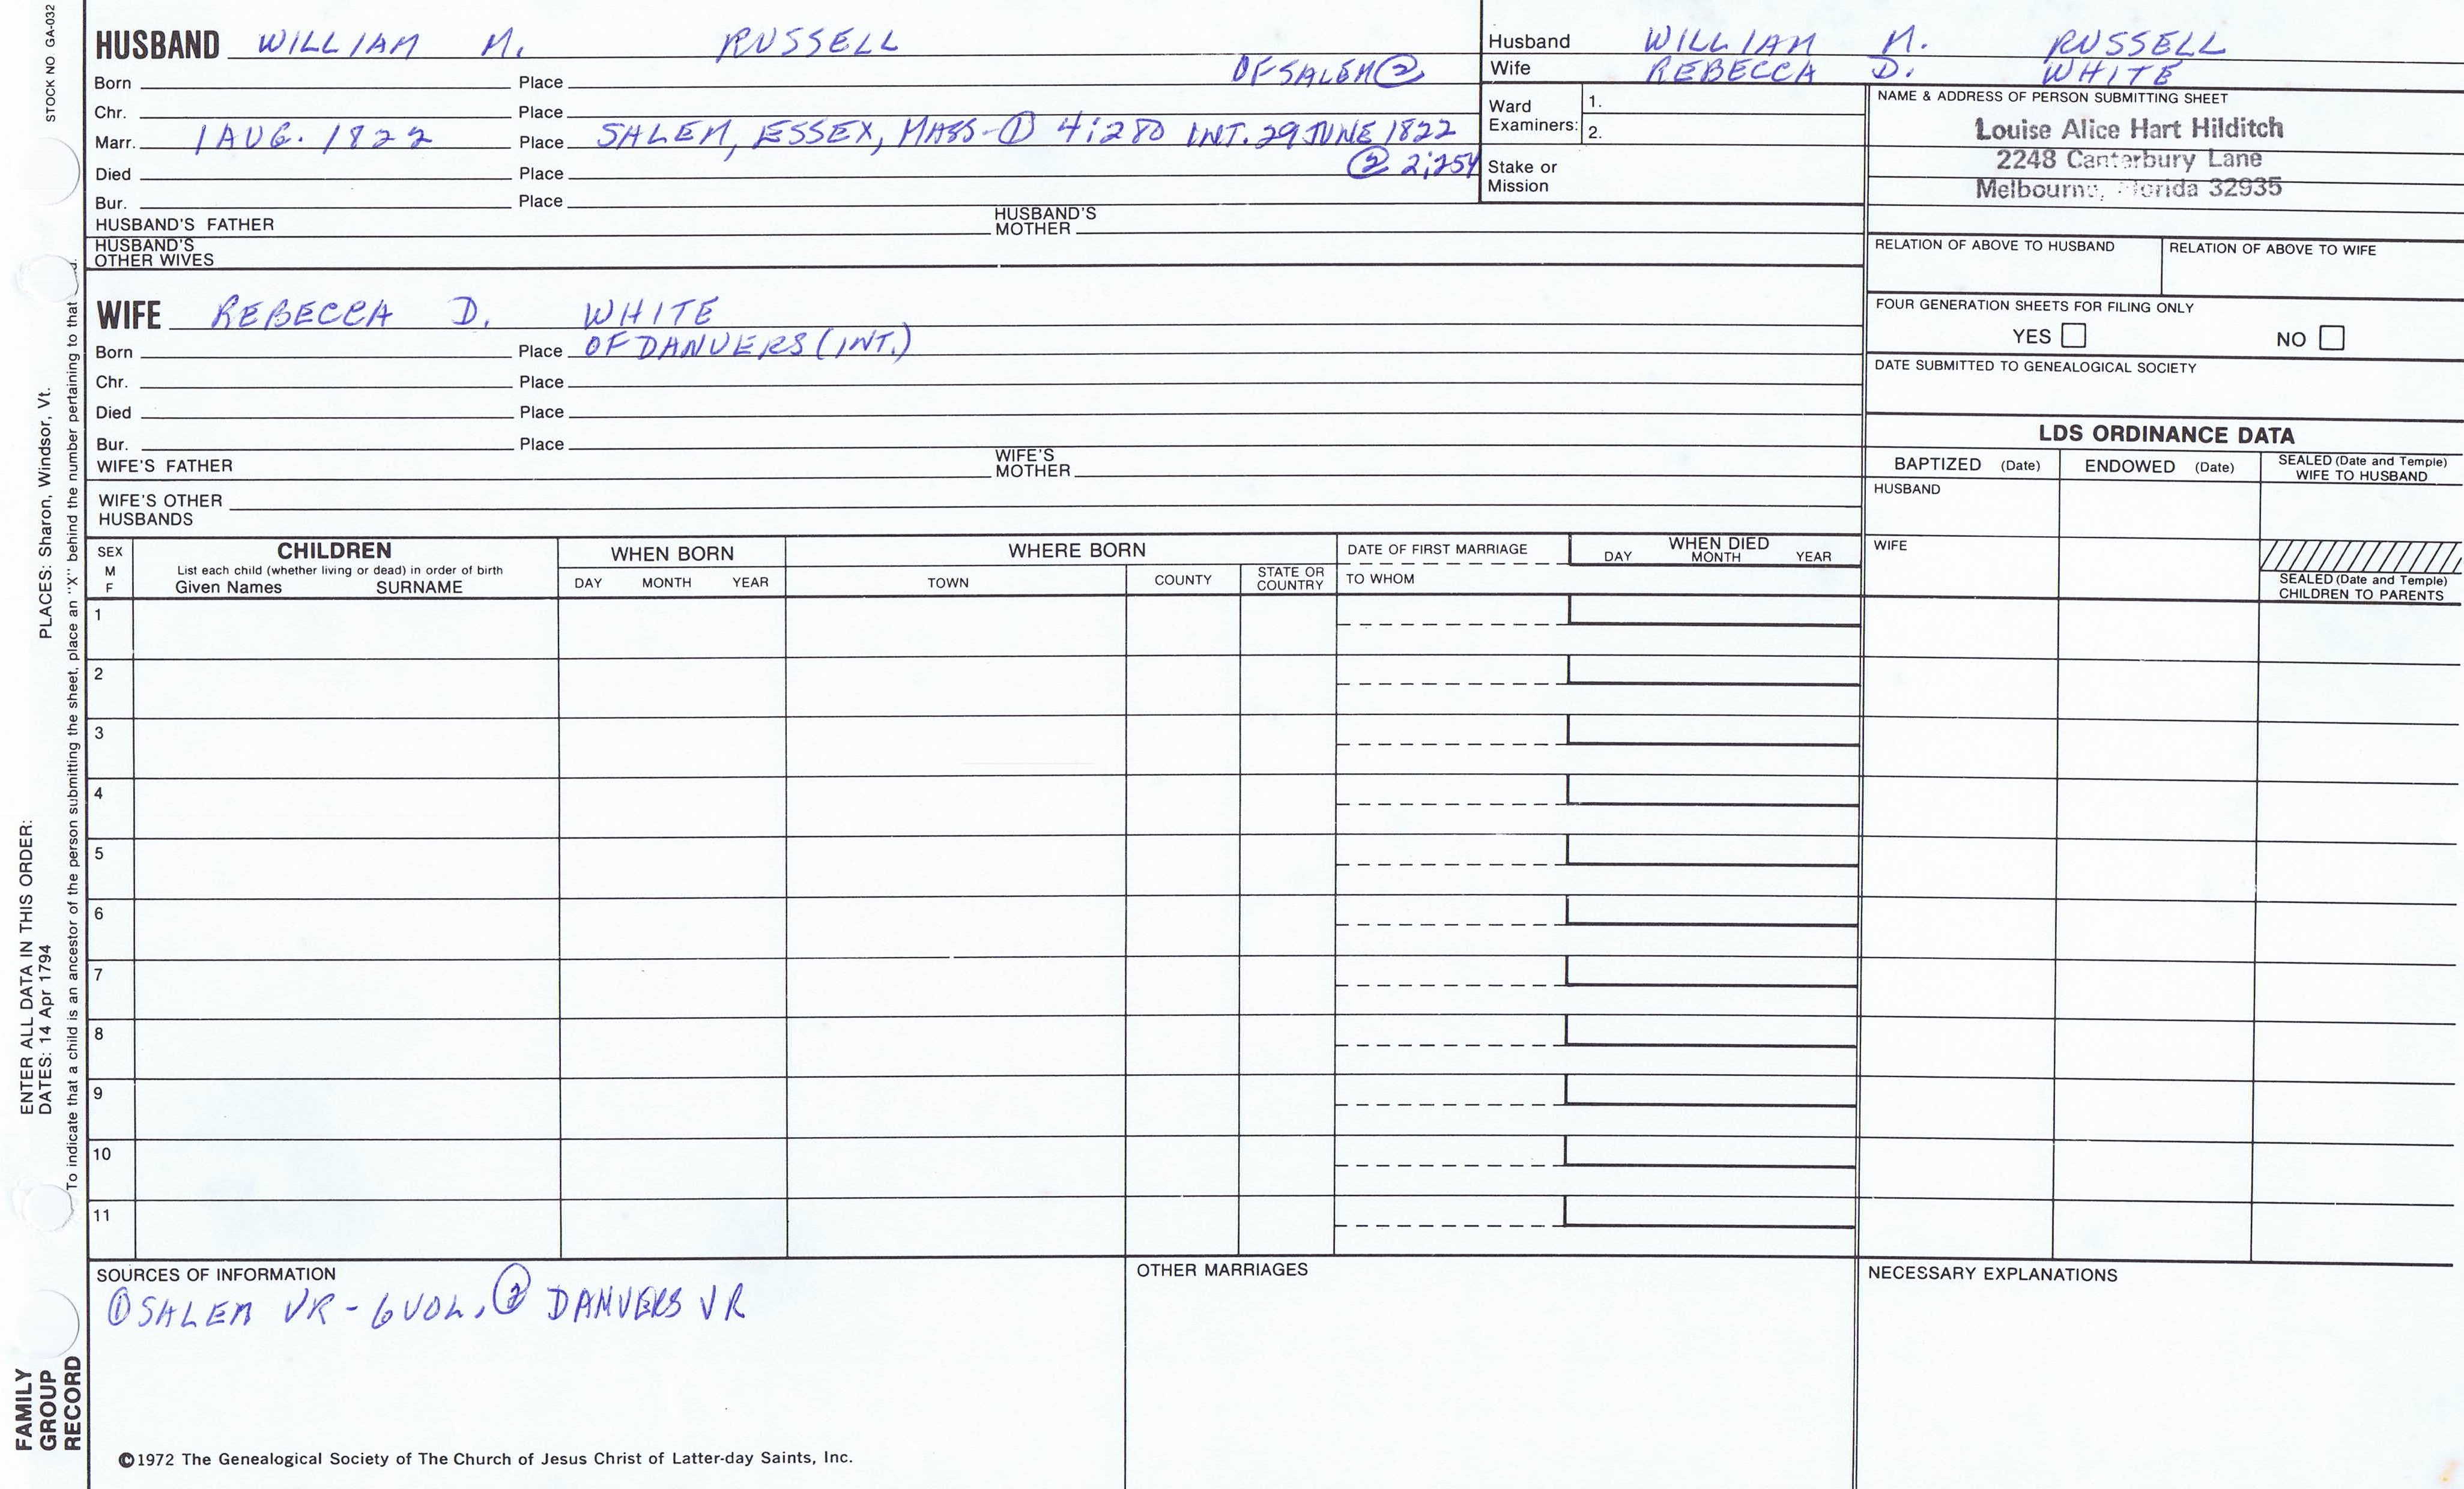 STOCK NO. GA-032
PLACES: Sharon, Windsor, Vt.
ENTER ALL DATA IN THIS ORDER:
DATES: 14 Apr 1794
To indicate that a child is an ancestor of the person submitting the sheet, place an "X" behind the number pertaining to that
FAMILY
GROUP
RECORD
HUSBAND WILLIAM M. RUSSELL
OF SALEM ②
Born Place
Chr. Place
Marr. 1 AUG. 1822 Place SALEM, ESSEX, MASS-① 4:280 INT. 29 JUNE 1822
② 2:254
Died Place
Bur. Place
HUSBAND'S FATHER HUSBAND'S MOTHER
HUSBAND'S
OTHER WIVES
WIFE REBECCA D. WHITE
Born Place OF DANVERS (INT.)
Chr. Place
Died Place
Bur. Place
WIFE'S FATHER WIFE'S MOTHER
WIFE'S OTHER
HUSBANDS
Husband WILLIAM M. RUSSELL
Wife REBECCA D. WHITE
Ward
Examiners:
1.
2.
Stake or
Mission
NAME & ADDRESS OF PERSON SUBMITTING SHEET
Louise Alice Hart Hilditch
2248 Canterbury Lane
Melbourne, Florida 32935
RELATION OF ABOVE TO HUSBAND RELATION OF ABOVE TO WIFE
FOUR GENERATION SHEETS FOR FILING ONLY
YES NO
DATE SUBMITTED TO GENEALOGICAL SOCIETY
LDS ORDINANCE DATA
BAPTIZED (Date) ENDOWED (Date) SEALED (Date and Temple)
WIFE TO HUSBAND
HUSBAND
WIFE
SEALED (Date and Temple)
CHILDREN TO PARENTS
SEX
M
F
CHILDREN
List each child (whether living or dead) in order of birth
Given Names SURNAME
WHEN BORN
DAY MONTH YEAR
WHERE BORN
TOWN COUNTY STATE OR COUNTRY
DATE OF FIRST MARRIAGE
TO WHOM
WHEN DIED
DAY MONTH YEAR
1
2
3
4
5
6
7
8
9
10
11
SOURCES OF INFORMATION
① SALEM VR - 6 VOL. ② DANVERS VR
OTHER MARRIAGES
NECESSARY EXPLANATIONS
©1972 The Genealogical Society of The Church of Jesus Christ of Latter-day Saints, Inc.